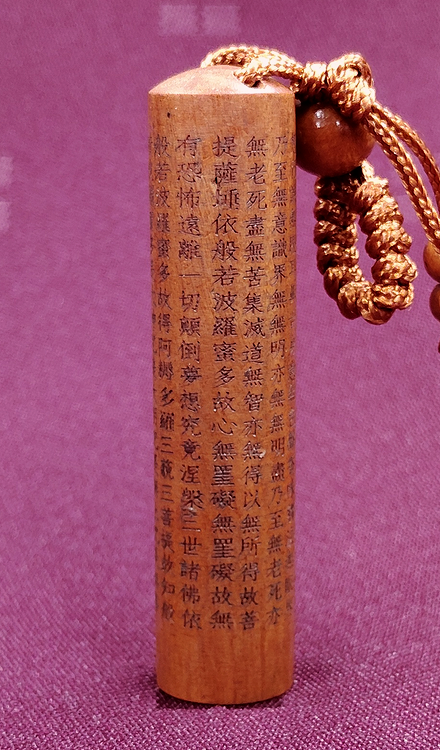 乃至無意識界無無明亦無無明盡乃至無老死亦
無老死盡無苦集滅道無智亦無得以無所得故菩
提薩埵依般若波羅蜜多故心無罣礙無罣礙故無
有恐怖遠離一切顛倒夢想究竟涅槃三世諸佛依
般若波羅蜜多故得阿耨多羅三藐三菩提故知般